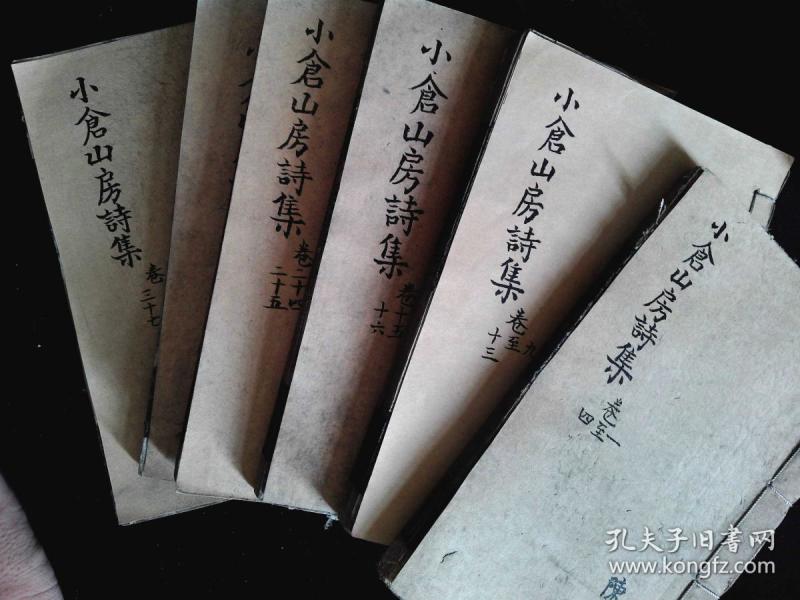 小倉山房詩集
卷三十七
小倉山房詩集
卷二十四
二十五
小倉山房詩集
卷十五
十六
小倉山房詩集
卷九
至
十三
小倉山房詩集
卷一
至
四
陳
孔夫子旧書网
www.kongfz.com